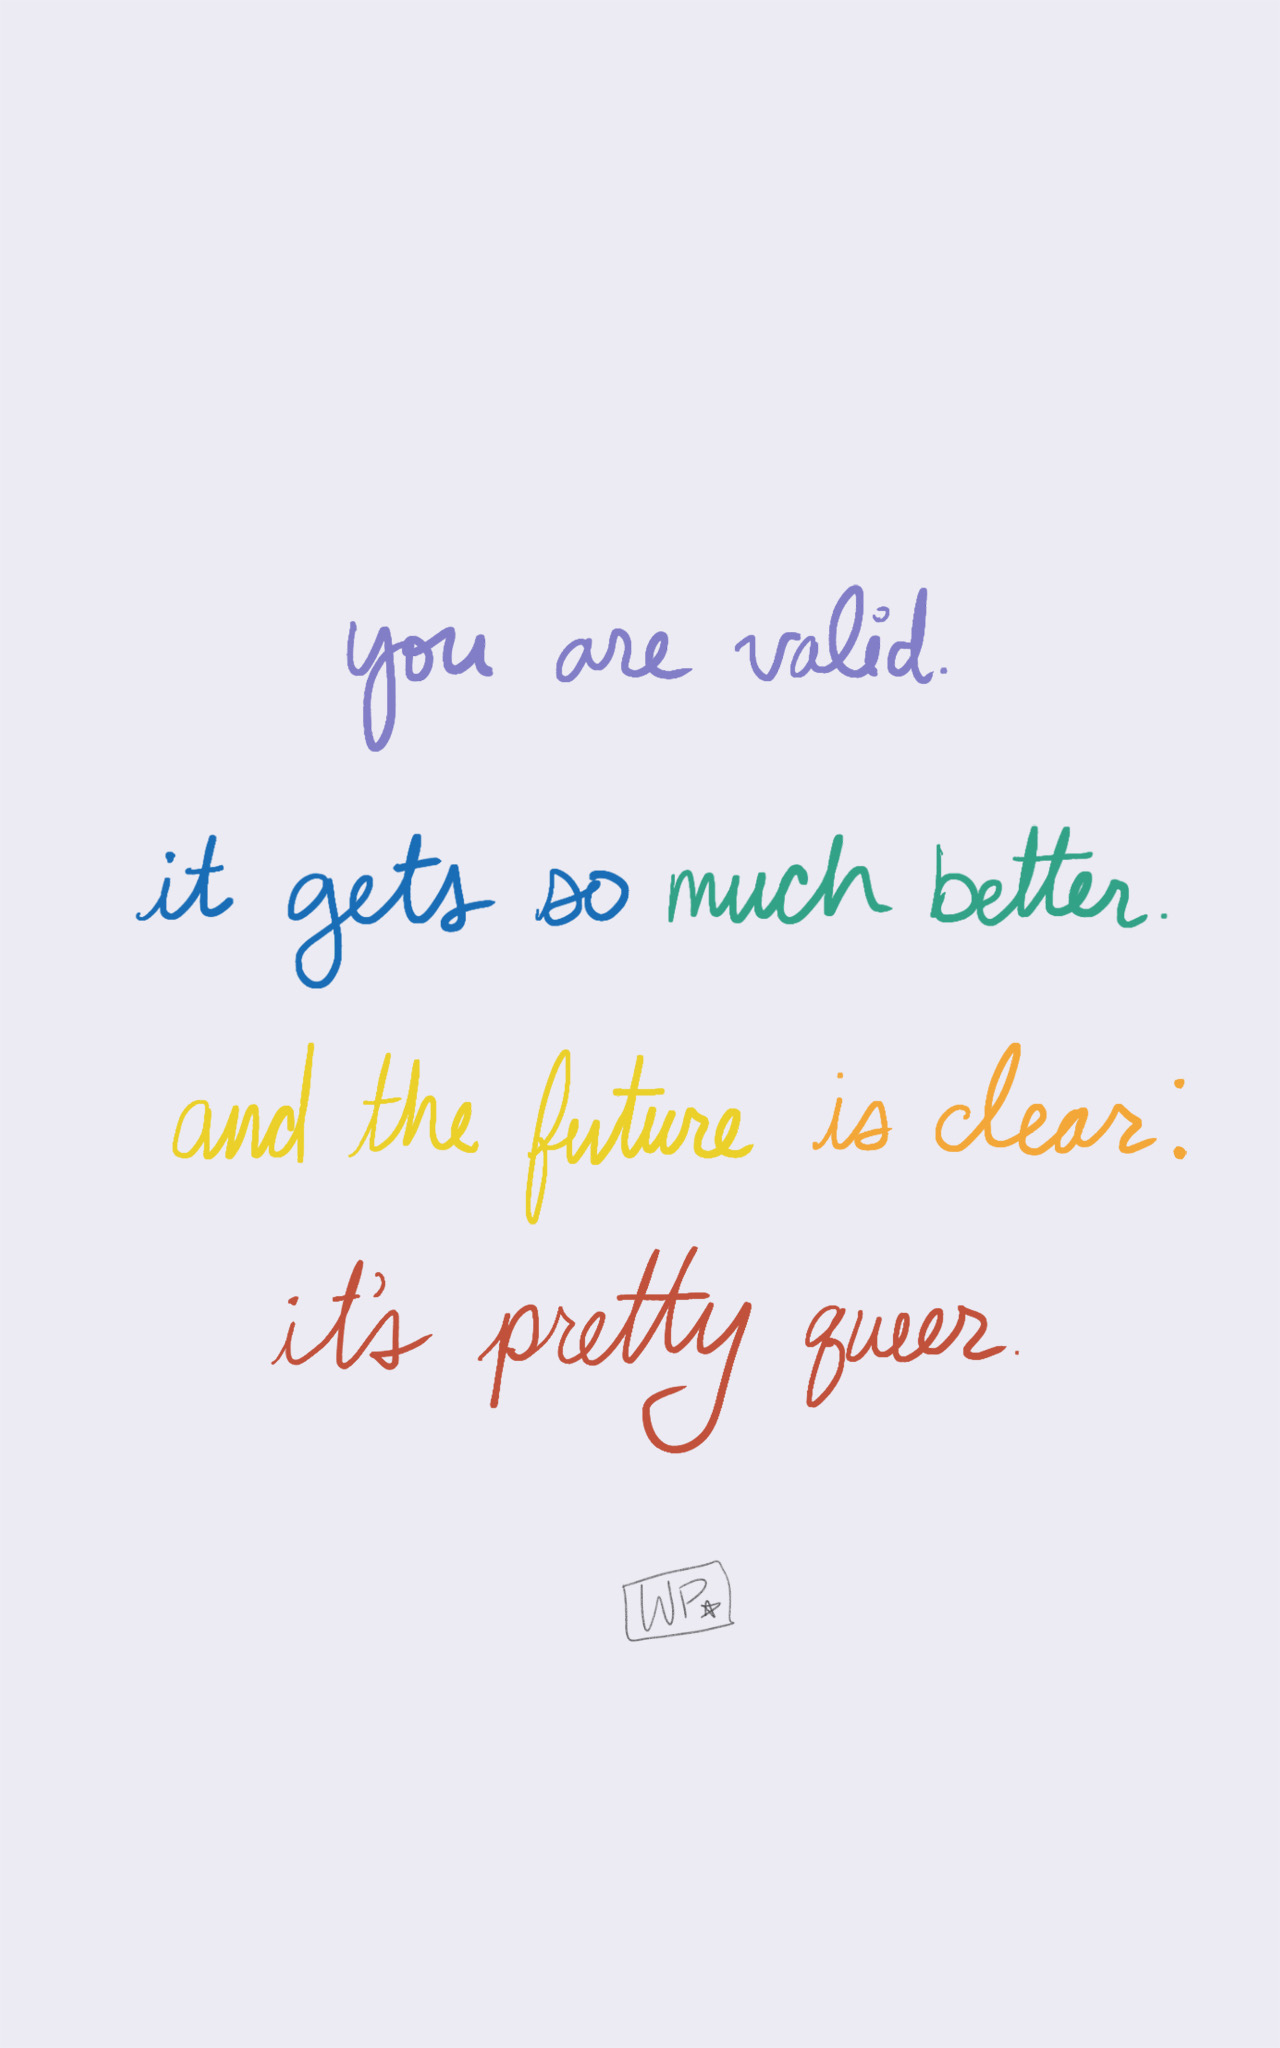 you are valid.
it gets so much better.
and the future is clear:
it's pretty queer.
WP